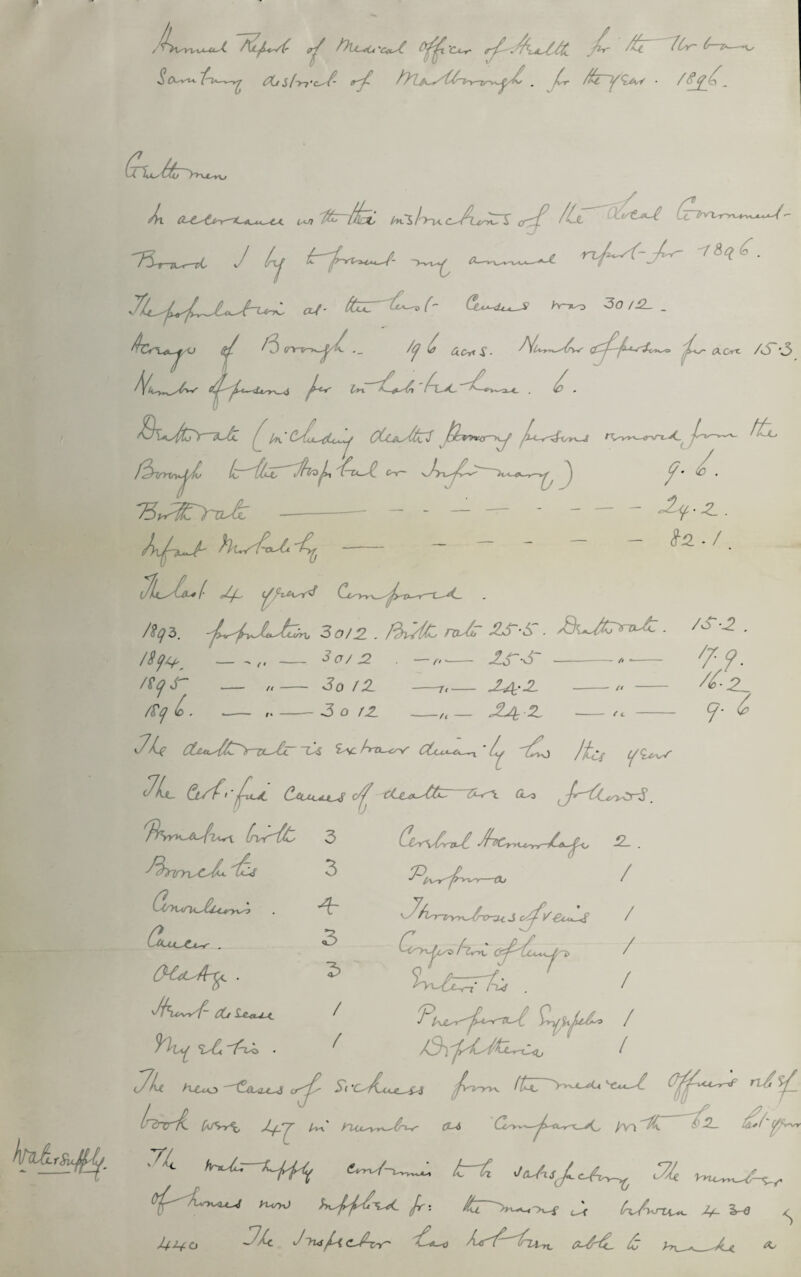 Annual Report of Medical Officer of Health for the Urban
Sanitary district of Marlborough. for the year. 1896.
Gentlemen
In accordance with the instructions of the Local Government
Board I beg to present my annual report for 1896.
The population at the last Census was 3012.
Acreage of Borough. 196 acres. Number of persons per acre 15.3.
Number of persons per inhabited house. 6.
Death rate (including deaths among persons removed from the
Borough to the Hospital or Infirmary) 9.6.
Birth rate 24.2.
Infant Mortality 82.1.
The last 4 years Compared.
1893. population 3012. Birth rate 25.5. Death rate. 15.2.
1894. — " — 3012. — " — 25.5 — " — 17.9.
1895 — " — 3012 — " — 24.2 — " — 16.2
1896. — " — 3012 — " — 24.2 — " — 9.6
The death rate is extraordinarily low this year
The Certified Causes of death are as follows.
Premature birth 3 Cerebral Haemorrhage 2.
Bronchitis 3 Purpura 1
Convulsions. 4 Thrombosis of veins 1
Cancer. 3 Congestion of lungs 1
Old Age. 3 Enteritis. 1
Heart disease 1 Puerperal Erysipelas 1
Myelitis. 1 Diphtheria 1
The new Cases of Sickness from the medical Officer's relief
book were 47 in number as Compared with 62 last year
Water Supply. The Water Supply continues to be satisfactory The number
of houses now supplied fr: the mains is between 430 &
440 The Inspector has not been able to make a